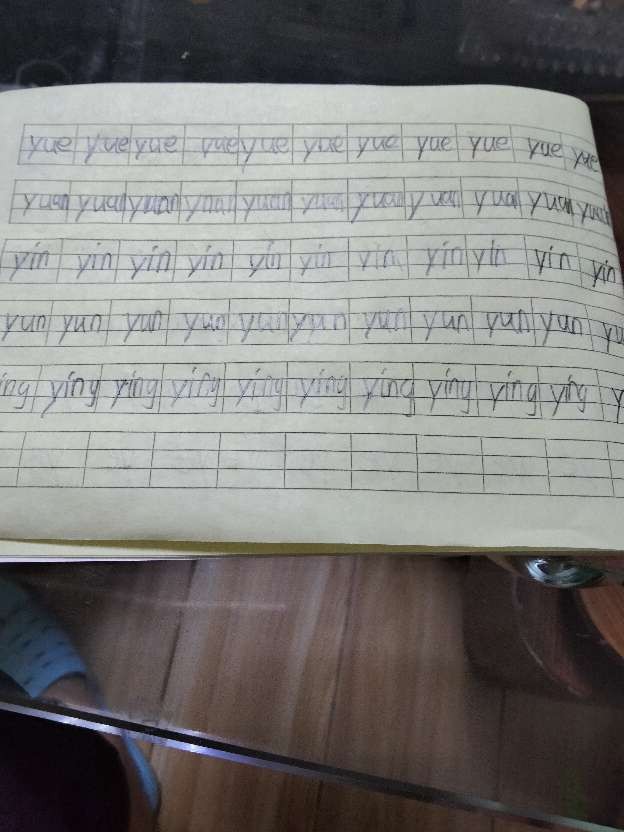 yue yue yue yue yue yue yue yue yue yue yue
yuan yuan yuan yuan yuan yuan yuan yuan yuan yuan yuan
yin yin yin yin yin yin yin yin yin yin yin
yun yun yun yun yun yun yun yun yun yun yu
ing ying ying ying ying ying ying ying ying ying y